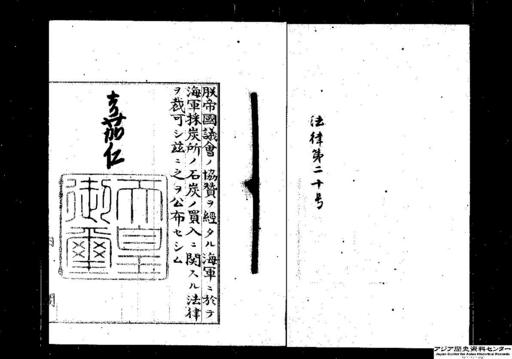 法律第二十号
朕帝國議會ノ協賛ヲ經タル海軍ニ於テ
海軍採炭所ノ石炭ノ買入ニ関スル法律
ヲ裁可シ茲ニ之ヲ公布セシム
嘉仁
天皇
御璽
アジア歴史資料センター
Japan Center for Asian Historical Records